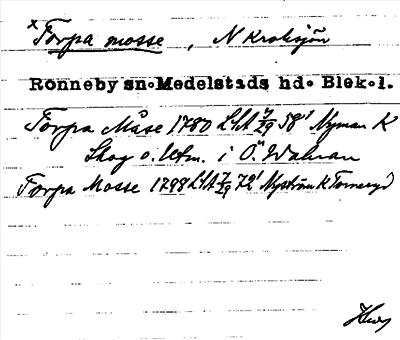 x Torpa mosse, N Kroksjön
Ronneby sn. Medelstads hd. Blek. l.
Torpa Måse 1780 LSA 7/29 58' Nyman K
Skog o. Utm. i Ö. Walnan
Torpa Mosse 1798 LSA 7/29 72' Nyström K Torneryd